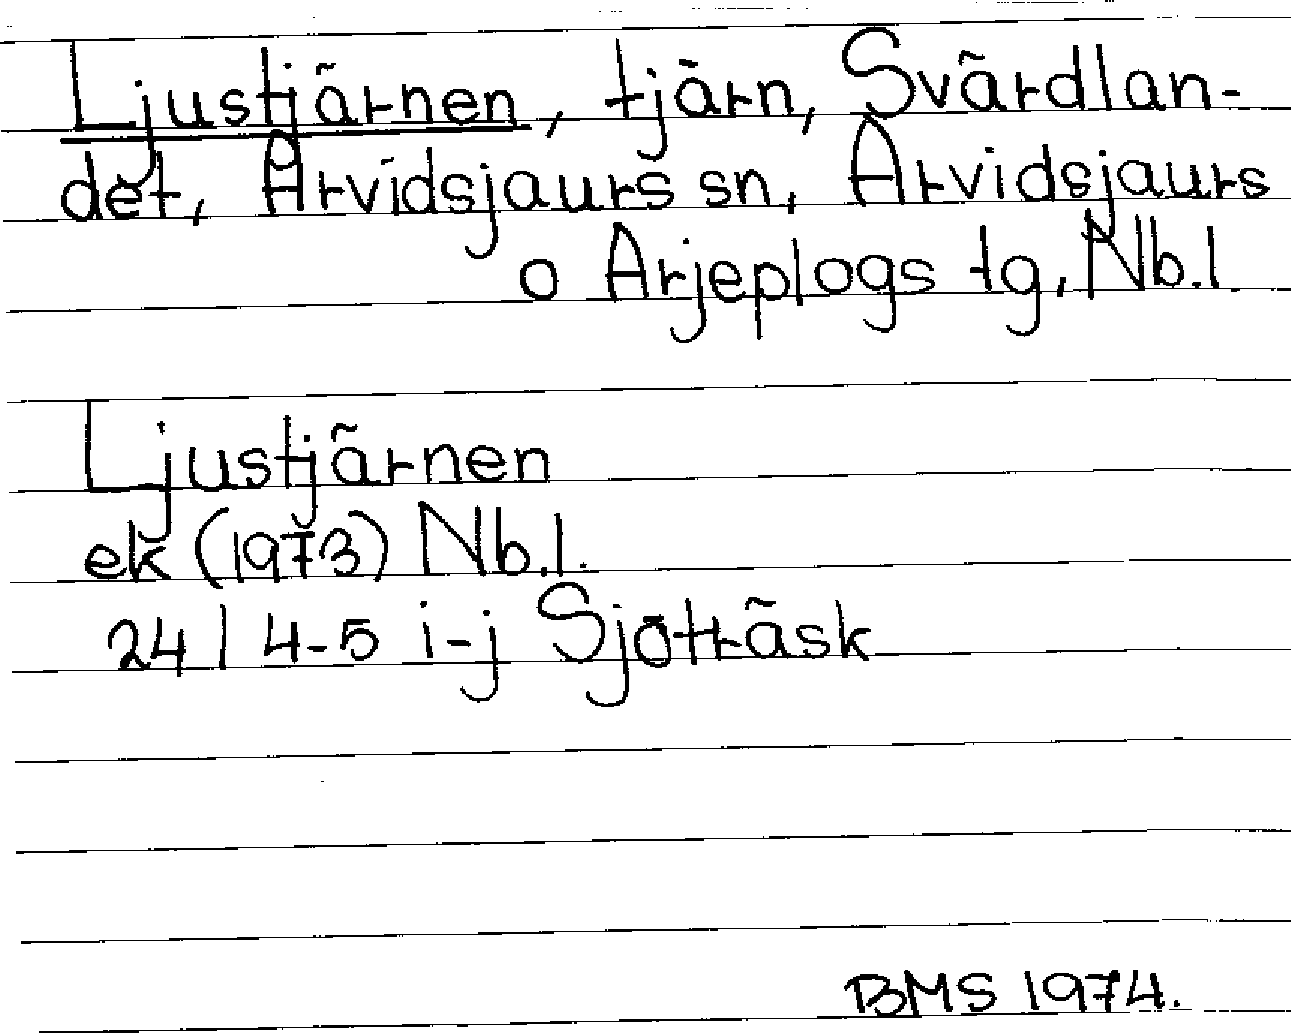 Ljustjärnen, tjärn, Svärdlan-
det, Arvidsjaurs sn, Arvidsjaurs
o Arjeplogs tg, Nb.l.
Ljustjärnen
ek (1973) Nb.l.
24 I 4-5 i-j Sjöträsk
BMS 1974.